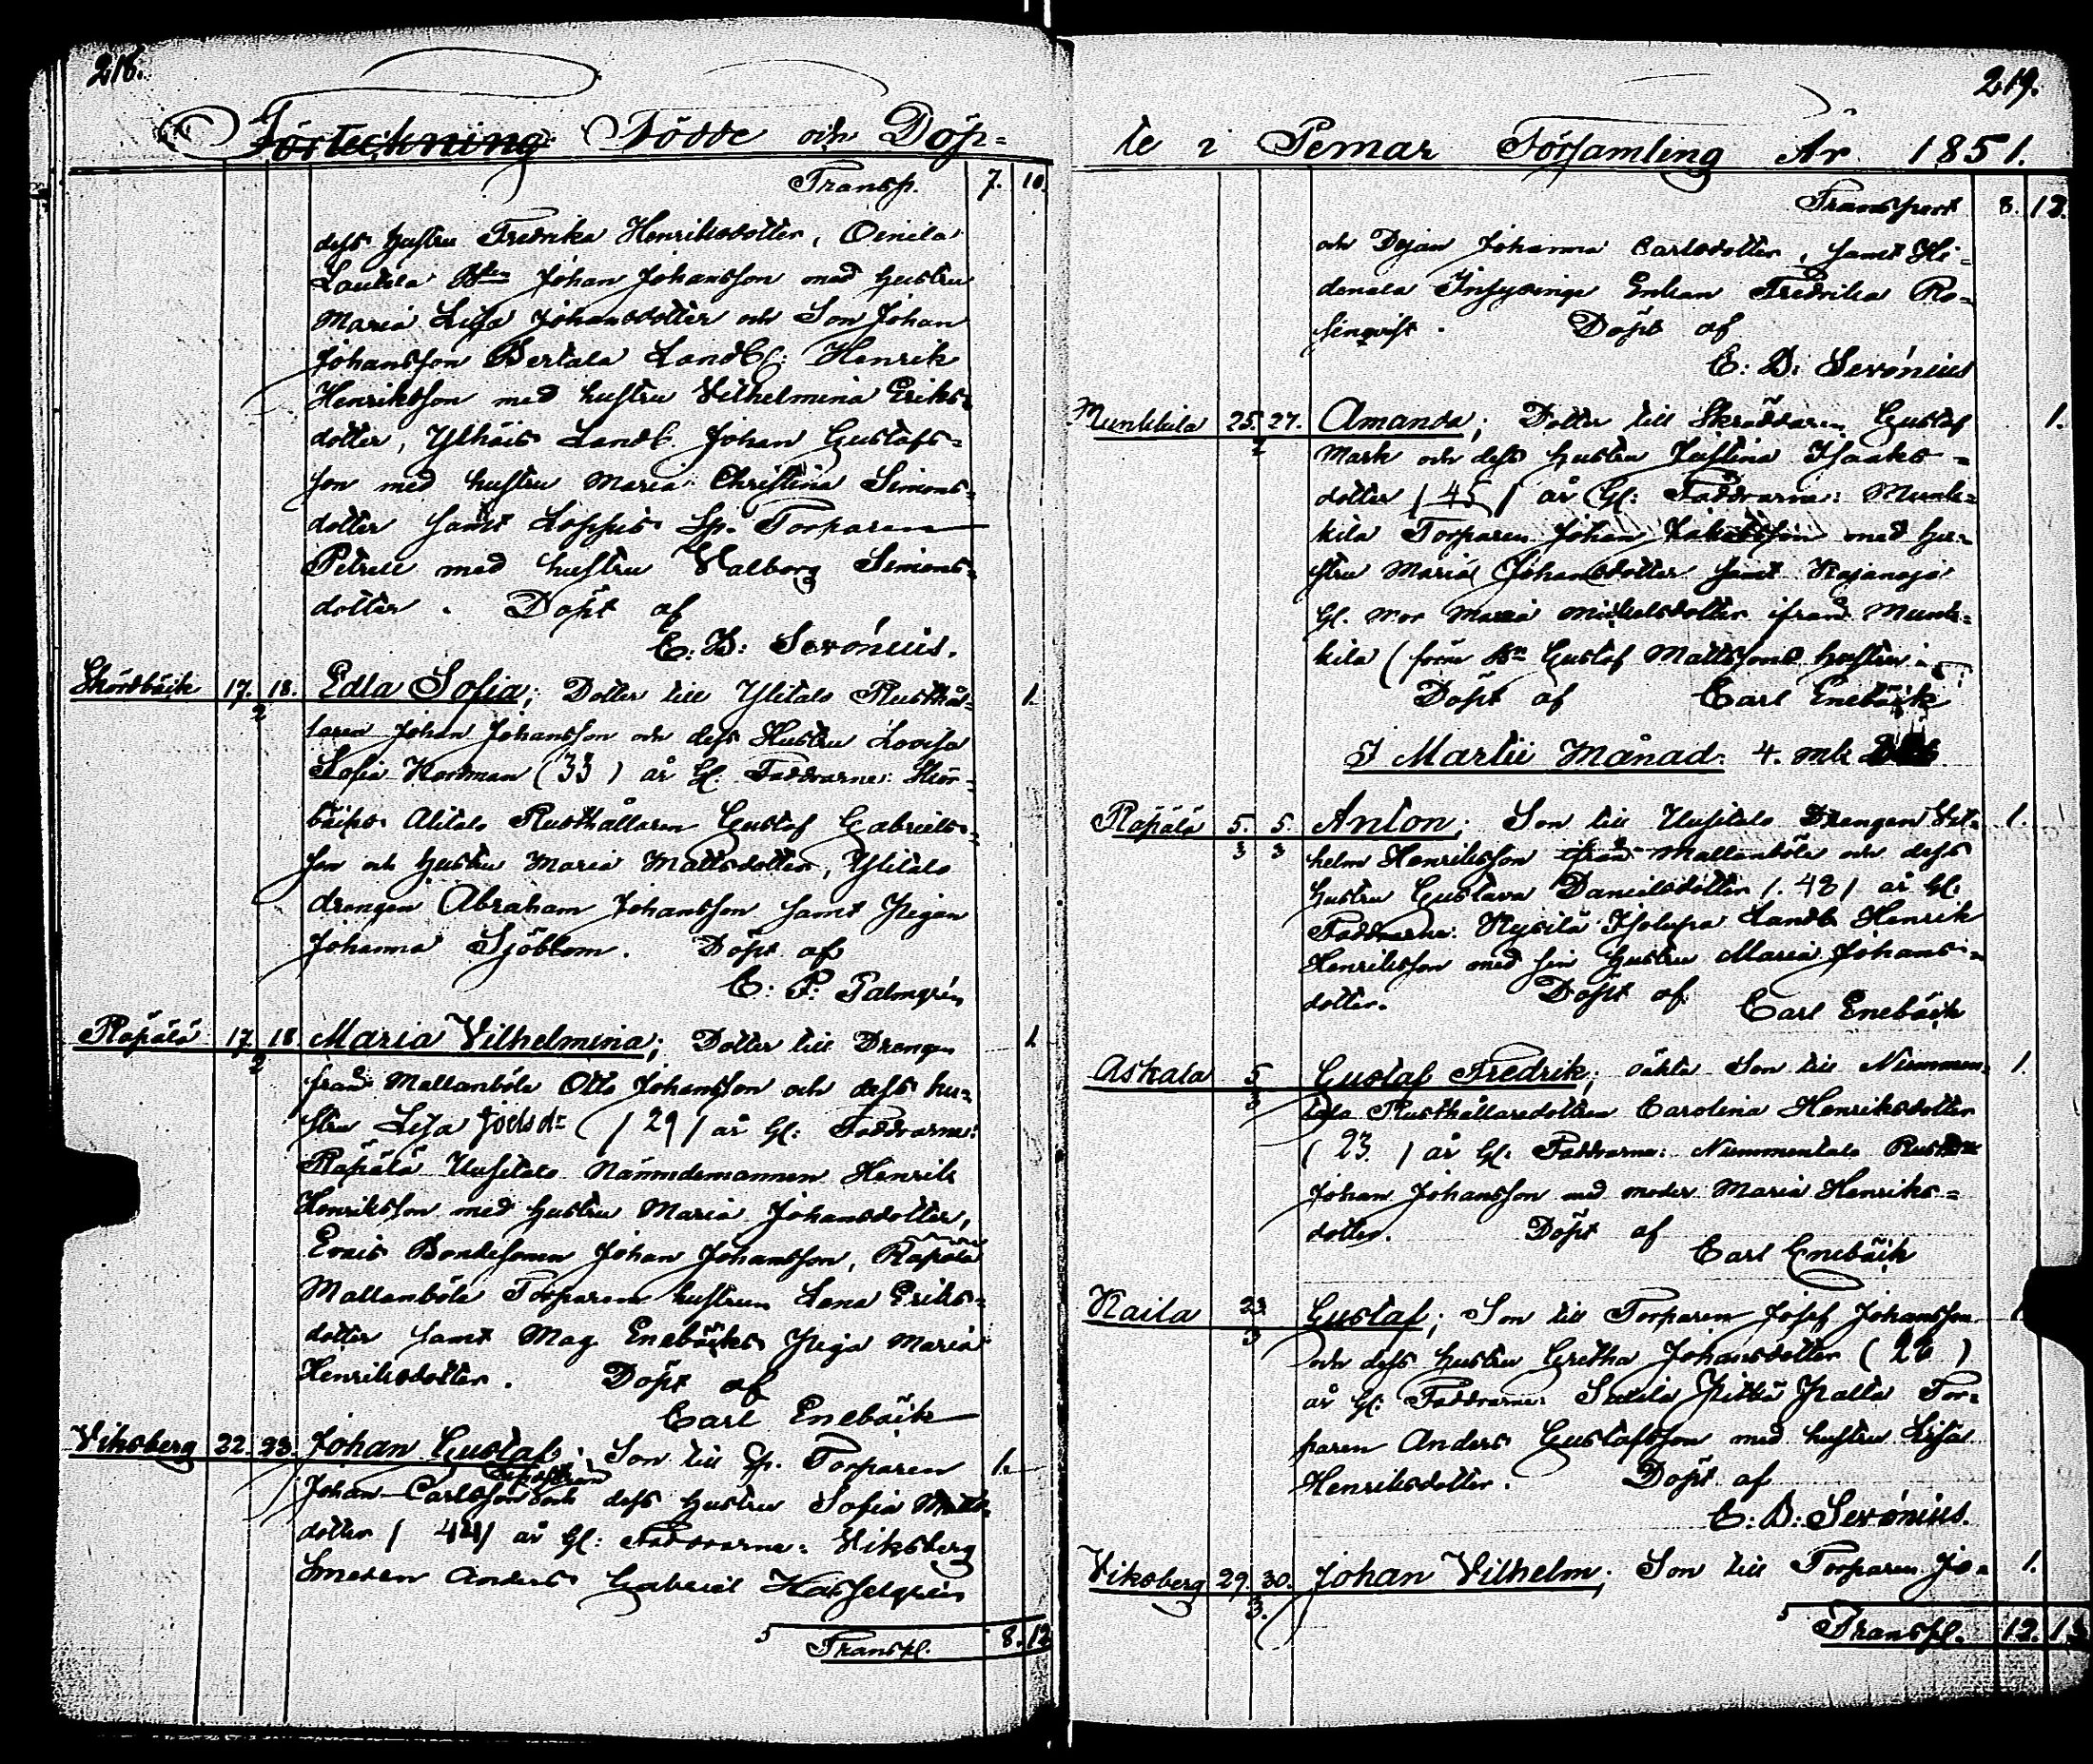 218.
Förteckning Födde och Döp=
Transp. 7. 10.
dess hustru Fredrika Henriksdotter, Oinila
Laukka Bden Johan Johansson med hustru
Maria Lisa Johansdotter och Son Johan
Johansson Bertala Landb: Henrik
Henriksson med hustru Vilhelmina Eriks=
dotter, Ylhäis Landb. Johan Gustafs=
son med hustru Maria Christina Simons=
dotter samt Loppis Sp. Torparen
Petrell med hustru Valborg Simons=
dotter. Döpt af
E. B: Serónius.
17. 18. Edla Sofia; Dotter till Ylitalo Rusthål= 1.
2
laren Johan Johansson och dess Hustru Lovisa
Sofia Nordman (33) år Gl: Faddrarne:
Alitalo Rusthållaren Gustaf Gabriels=
son och hustru Maria Mattsdotter, Ylitalo
drengen Abraham Johansson samt Pigan
Johanna Sjöblom. Döpt af
C. P: Palmgrén
Räpälä 17. 18. Maria Vilhelmina; Dotter till Drengen 1.
2
från Mallanböle Otto Johansson och dess hu=
stru Lisa Joelsdr (29) år Gl: Faddrarne:
Räpälä Uusitalo Nämndemannen Henrik
Henriksson med hustru Maria Johansdotter,
Bondesonen Johan Johansson, Räpälä
Mallanböle Torparen hustrun Lena Eriks=
dotter samt Mag. Enebäcks Piga Maria
Henriksdotter. Döpt af
Carl Enebäck
Viksberg 22. 23. Johan Gustaf; Son till Sp. Torparen 1.
Johan Carlsson och dess hustru Sofia Matts=
dotter (44) år Gl: Faddrarne: Viksberg
Smeden Anders Gabriel Hasselgrén
Transp. 8. 12
219.
te i Pemar Församling År 1851.
Transport 8. 12.
och Pigan Johanna Carlsdotter, samt
Enkan Fredrika Ro=
senqvist. Döpt af
E: B: Serónius
Munkkila 25. 27. Amanda; Dotter till Skräddaren Gustaf 1.
2
Mark och dess hustru Justina Isaks=
dotter (45) år Gl: Faddrarne: Munk=
kila Torparen Johan med hu=
stru Maria Johansdotter samt Kajanoja
Gl. mor Maria Michelsdotter ifrån Munk=
kila (förre Bn Gustaf Mattssons hustru
Döpt af Carl Enebäck
I Martii Månad: 4. mk
Räpälä 5. 5. Anton; Son till Uusitalo Drengen Vil= 1.
3 3
helm Henriksson ifrån Mallanböle och dess
hustru Gustava Danielsdotter (43) år Gl.
Faddrarne. Isotupa Landb. Henrik
Henriksson med sin hustru Maria Johans=
dotter. Döpt af
Carl Enebäck
Askala 5 Gustaf Fredrik; oäkta Son till Nummen= 1.
3
talo Rusthållaredottren Carolina Henriksdotter
(23.) år Gl. Faddrarne: Nummentalo
Johan Johansson med moder Maria Henriks=
dotter. Döpt af
Carl Enebäck
23 Gustaf; Son till Torparen Josef Johansson
3
och dess hustru Gretha Johansdotter (26)
år Gl: Faddrarne: Tor=
paren Anders Gustafsson med hustru Lisa
Henriksdotter. Döpt af
E. B: Serónius.
Viksberg 29. 30. Johan Vilhelm; Son till Torparen Jo= 1.
3.
Transp. 12. 13